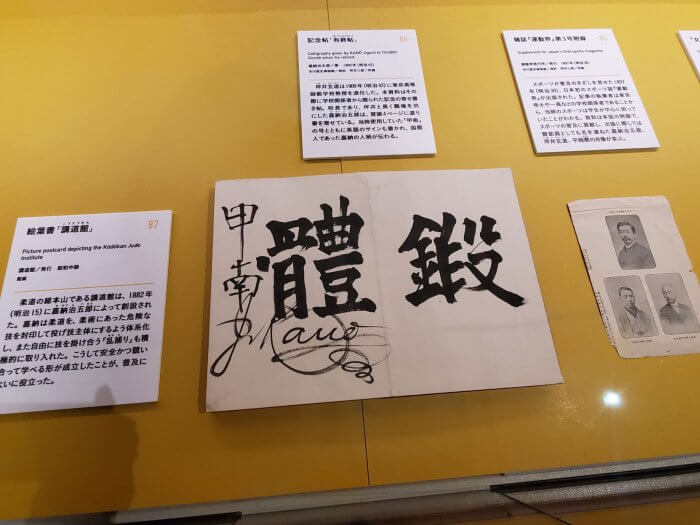 記念帖「有終帖」
86
Calligraphy given by KANŌ Jigorō to TSUBOI
Gendō when he retired
嘉納治五郎/筆 1909年(明治42)
坪井玄道は1909年(明治42)に東京高等
師範学校教授を退任した。本資料はその
際に学校関係者から贈られた記念の寄せ書
き帖。校長であり、坪井と長く職場を共
にした嘉納治五郎は、冒頭4ページに渡り
書を寄せている。当時使用していた「甲南」
の号とともに英語のサインも書かれ、国際
人であった嘉納の人柄が伝わる。
雑誌『運動界』第3号附録
85
Supplement for Japan's first sports magazine
スポーツが普及のきざしを見せた1897
年(明治30)、日本初のスポーツ誌『運動
界』が出版された。記事の執筆者は東京
帝大や一高などの学校関係者であることか
ら、当時のスポーツは学生が中心に担って
いたことがわかる。資料は本誌の附録で、
スポーツの普及に貢献し、出版に際しては
賛助員としても名を連ねた嘉納治五郎、
坪井玄道、平岡凞の肖像が並ぶ。
鍛
體
甲南
J. Kano
こうどうかん
絵葉書「講道館」
87
Picture postcard depicting the Kōdōkan Judo
Institute
講道館/発行 昭和中期
館蔵
柔道の総本山である講道館は、1882年
(明治15)に嘉納治五郎によって創設され
た。嘉納は柔道を、柔術にあった危険な
技を封印して投げ技主体にするよう体系化
し、また自由に技を掛け合う「乱捕り」も積
極的に取り入れた。こうして安全かつ競い
合って学べる形が成立したことが、普及に
大いに役立った。